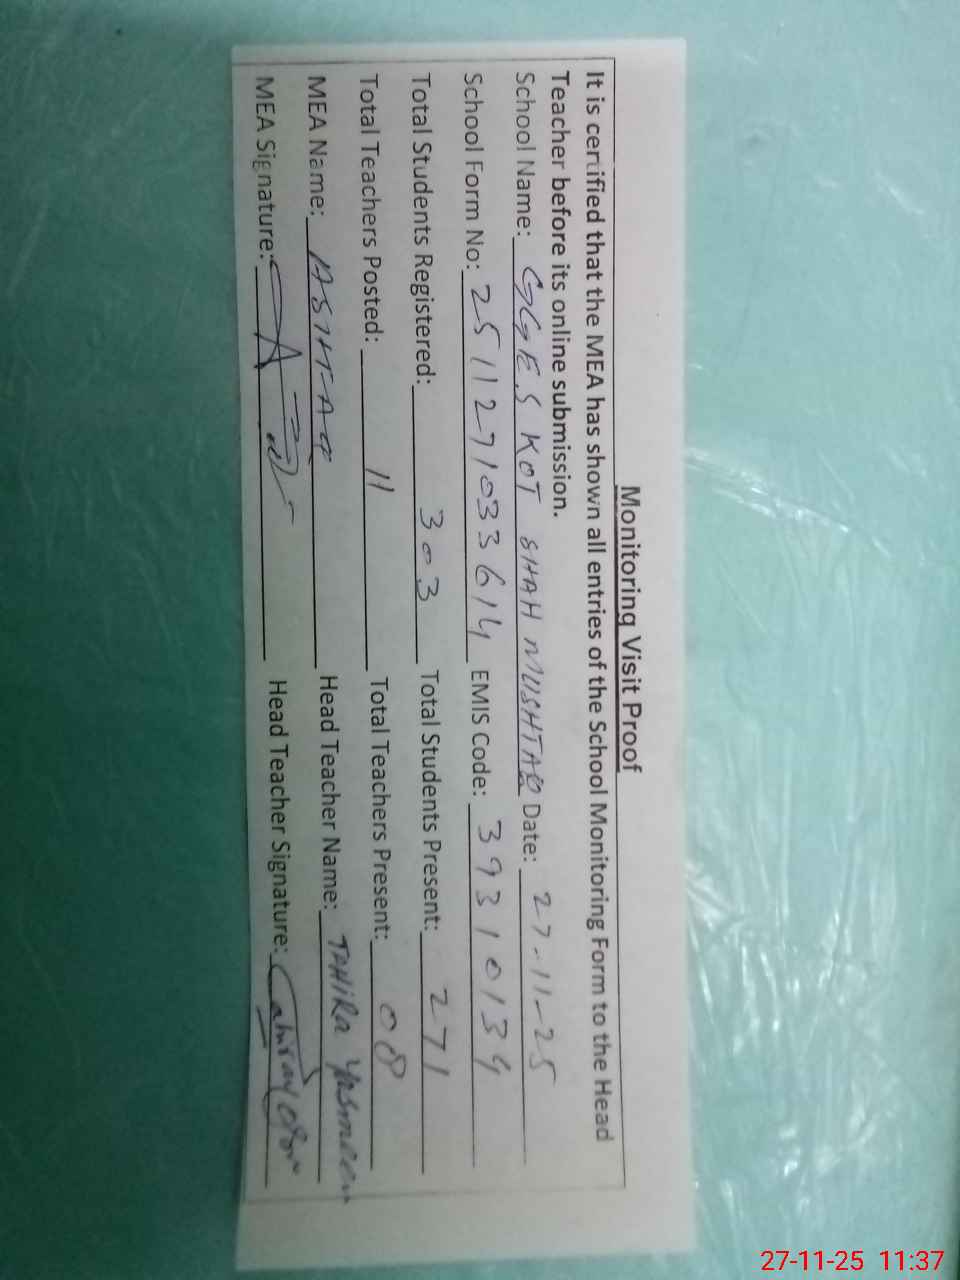 Monitoring Visit Proof
It is certified that the MEA has shown all entries of the School Monitoring Form to the Head
Teacher before its online submission.
School Name: GGES KOT SHAH MUSHTAQ Date: 27-11-25
School Form No: 25112710333614 EMIS Code: 39310134
Total Students Registered: 303 Total Students Present: 271
Total Teachers Posted: 11 Total Teachers Present: 08
MEA Name: ASHFAQ Head Teacher Name: TAHIRA YASMEEN
MEA Signature: Head Teacher Signature:
27-11-25 11:37